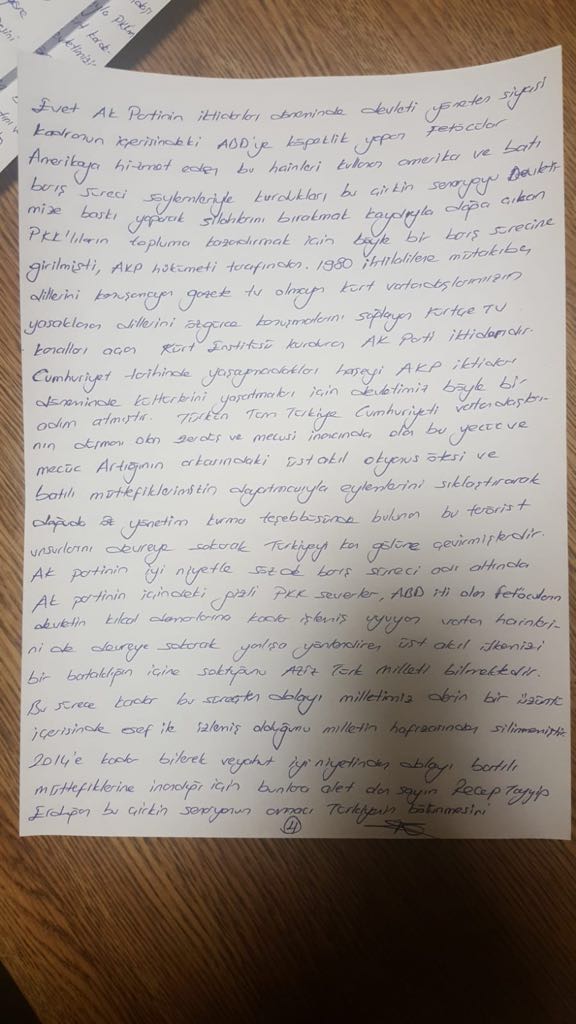 Evet Ak Partinin iktidarları döneminde devleti yöneten siyasi
kadronun içerisindeki ABD'ye köpeklik yapan Fetöcüler
Amerikaya hizmet eden bu hainleri kullanan amerika ve batı
barış süreci söylemleriyle kurdukları bu çirkin senaryoyu Devleti-
mize baskı yaparak silahlarını bırakmak kaydıyla dağa çıkan
PKK'lıların topluma kazandırmak için böyle bir barış sürecine
girilmişti, AKP hükümeti tarafından. 1980 ihtilalilene mütakiben
dillerini konuşamayan gazete tv olmayan kürt vatandaşlarımızın
yasaklanan dillerini özgürce konuşmalarını sağlayan kürtçe TV
kanalları açan Kürt Enstitüsü kurduran AK Parti iktidarıdır.
Cumhuriyet tarihinde yaşayamadıkları herşeyi AKP iktidarı
döneminde kültürlerini yaşatmaları için devletimiz böyle bir
adım atmıştır. Türkün Tüm Türkiye Cumhuriyeti vatandaşları-
nın düşmanı olan zerdüş ve mecusi inancında olan bu yecüc ve
mecüc Artığının arkasındaki üst akıl okyanus ötesi ve
batılı müttefiklerimizin dayatmasıyla eylemlerini sıklaştırarak
doğuda öz yönetim kurma teşebbüsünde bulunan bu terörist
unsurlarını devreye sokarak Türkiyeyi kan gölüne çevirmişlerdir.
Ak partinin iyi niyetle sözde barış süreci adı altında
Ak partinin içindeki gizli PKK severler, ABD iti olan fetöcülerin
devletin kılcal damarlarına kadar işlemiş uyuyan vatan hainleri-
ni de devreye sokarak yanlışa yönlendiren üst akıl ülkemizi
bir bataklığın içine soktuğunu Aziz Türk milleti bilmektedir.
Bu sürece kadar bu süreçten dolayı milletimiz derin bir üzüntü
içerisinde esef ile izlemiş olduğunu milletin hafızasından silinmemiştir.
2014'e kadar bilerek veyahut iyi niyetinden dolayı batılı
müttefiklerine inandığı için bunlara alet olan sayın Recep Tayyip
Erdoğan bu çirkin senaryonun amacı Türkiyenin bölünmesini
4